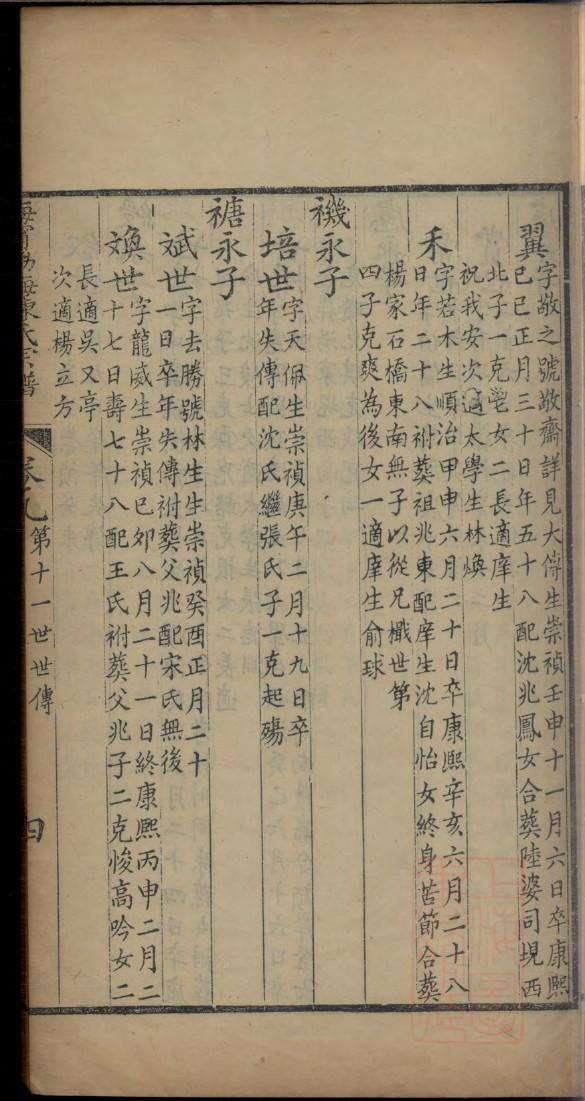 翼
字敬之號敬齋詳見大傳生崇禎壬申十一月六日卒康熙
己巳正月三十日年五十八配沈兆鳳女合葬陸婆司垷西
北子一克宅女二長適庠生
祝我安次適太學生林煥
禾
字若木生順治甲申六月二十日卒康熙辛亥六月二十八
日年二十八祔葬祖兆東配庠生沈自怡女終身苦節合葬
楊家石橋東南無子以從兄櫼世第
四子克爽為後女一適庠生俞球
禨永子
培世
字天佩生崇禎庚午二月十九日卒
年失傳配沈氏繼張氏子一克起殤
禟永子
斌世
字去勝號林生生崇禎癸酉正月二十
一日卒年失傳祔葬父兆配宋氏無後
煥世
字龍威生崇禎己卯八月二十一日終康熙丙申二月二
十七日壽七十八配王氏祔葬父兆子二克悛高吟女二
長適吳又亭
次適楊立方
海甯渤海陳氏宗譜 卷九 第十一世世傳 四